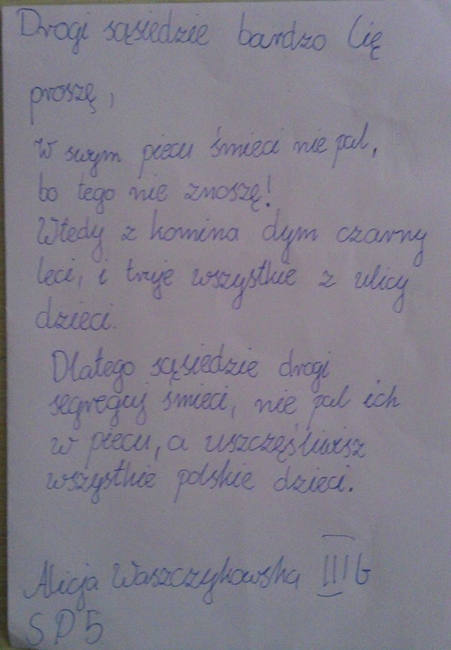 Drogi sąsiedzie bardzo Cię
proszę,
W swym piecu śmieci nie pal,
bo tego nie znoszę!
Wtedy z komina dym czarny
leci, i truje wszystkie z ulicy
dzieci.
Dlatego sąsiedzie drogi
segreguj śmieci, nie pal ich
w piecu, a uszczęśliwisz
wszystkie polskie dzieci.
Alicja Waszczykowska III b
SP5